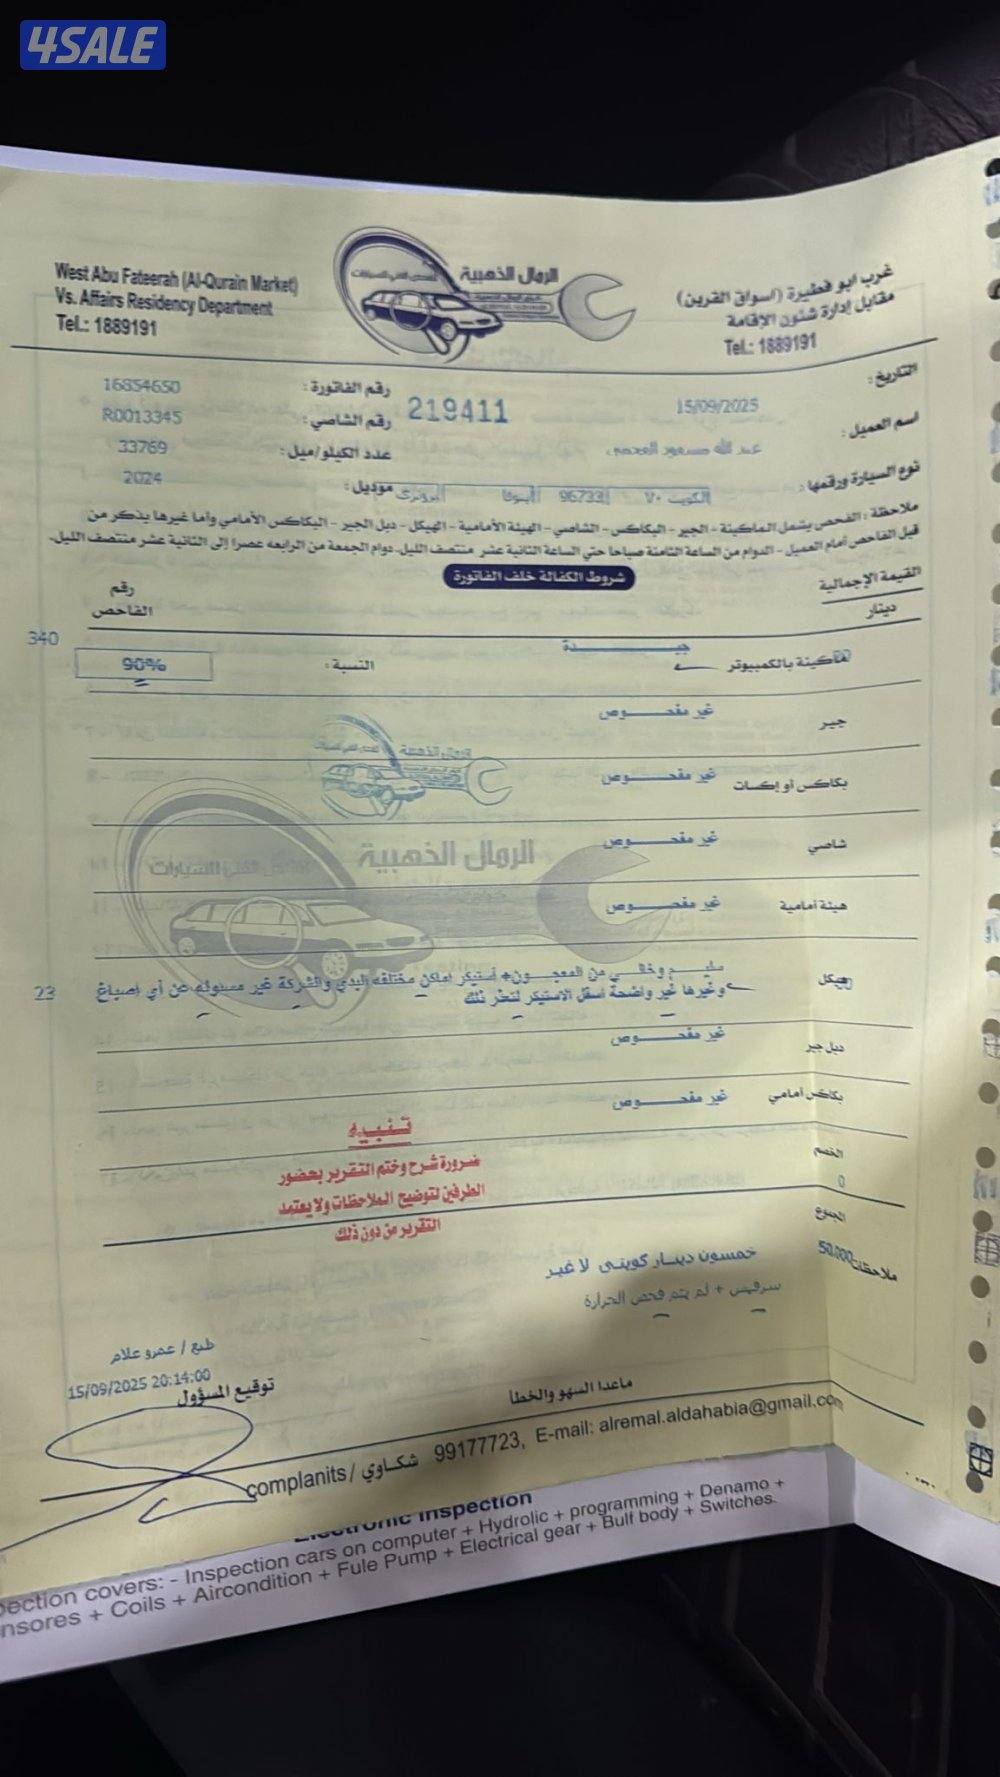 4SALE
West Abu Fateerah (Al-Qurain Market)
Vs. Affairs Residency Department
Tel.: 1889191
الرمال الذهبية
غرب ابو فطيرة (اسواق القرين)
مقابل إدارة شئون الإقامة
Tel.: 1889191
التاريخ: 15/09/2025
219411
رقم الفاتورة: 16854650
اسم العميل: عبد الله مسعود
رقم الشاصي: R0013345
عدد الكيلو/ميل: 33769
نوع السيارة ورقمها: الكويت ٧٠ / 96733
موديل: 2024
ملاحظة: الفحص يشمل الماكينة - الجير - البكاكس - الشاصي - الهيئة الأمامية - الهيكل - دبل الجير - البكاكس الأمامي وأما غيرها يذكر من
قبل الفاحص أمام العميل - الدوام من الساعة الثامنة صباحا حتي الساعة الثانية عشر منتصف الليل. دوام الجمعة من الرابعه عصرا إلى الثانية عشر منتصف الليل.
شروط الكفالة خلف الفاتورة
القيمة الإجمالية
دينار
رقم
الفاحص
ماكينة بالكمبيوتر جيـــدة النسبة: 90% 340
جير غير مفحـــوص
بكاكس أو إكسات غير مفحـــوص
شاصي غير مفحـــوص
الرمال الذهبية
هيئة أمامية غير مفحـــوص
هيكل سليـم وخالـي من المعجـون+ أستيكر أماكن مختلفه البدي والشركة غير مسئوله عن أي أصباغ 23
وغيرها غير واضحة أسفل الاستيكر لتعذر ذلك
دبل جير غير مفحـــوص
بكاكس أمامي غير مفحـــوص
تنبيه
ضرورة شرح وختم التقرير بحضور
الطرفين لتوضيح الملاحظات ولا يعتمد
التقرير من دون ذلك
الخصم
0
المجموع
50.000
خمسون دينـار كويتي لا غيـر
ملاحظات
سرفيس + لم يتم فحص الحرارة
طبع / عمرو علام
15/09/2025 20:14:00
توقيع المسؤول
ماعدا السهو والخطأ
complanits / شكاوي 99177723, E-mail: alremal.aldahabia@gmail.com
Electronic Inspection
pection covers: - Inspection cars on computer + Hydrolic + programming + Denamo +
nsores + Coils + Aircondition + Fule Pump + Electrical gear + Bulf body + Switches.